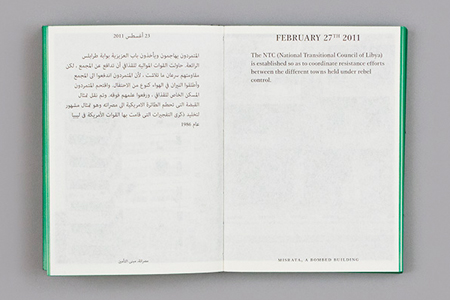 23 أغسطس 2011
المتمردون يهاجمون ويأخذون باب العزيزية بوابة طرابلس
الرائعة. حاولت القوات المواليه للقذافي أن تدافع عن المجمع ، لكن
مقاومتهم سرعان ما تلاشت ، لأن المتمردون اندفعوا الى المجمع
وأطلقوا النيران في الهواء كنوع من الاحتفال. واقتحم المتمردون
المسكن الخاص للقذافي ، ورفعوا علمهم فوقه. وتم نقل تمثال
القبضة التي تحطم الطائرة الامريكية الى مصراته وهو تمثال مشهور
لتخليد ذكرى التفجيرات التي قامت بها القوات الأمريكة في ليبيا
عام 1986
مصراتة، مبنى التأمين
FEBRUARY 27TH 2011
The NTC (National Transitional Council of Libya)
is established so as to coordinate resistance efforts
between the different towns held under rebel
control.
MISRATA, A BOMBED BUILDING